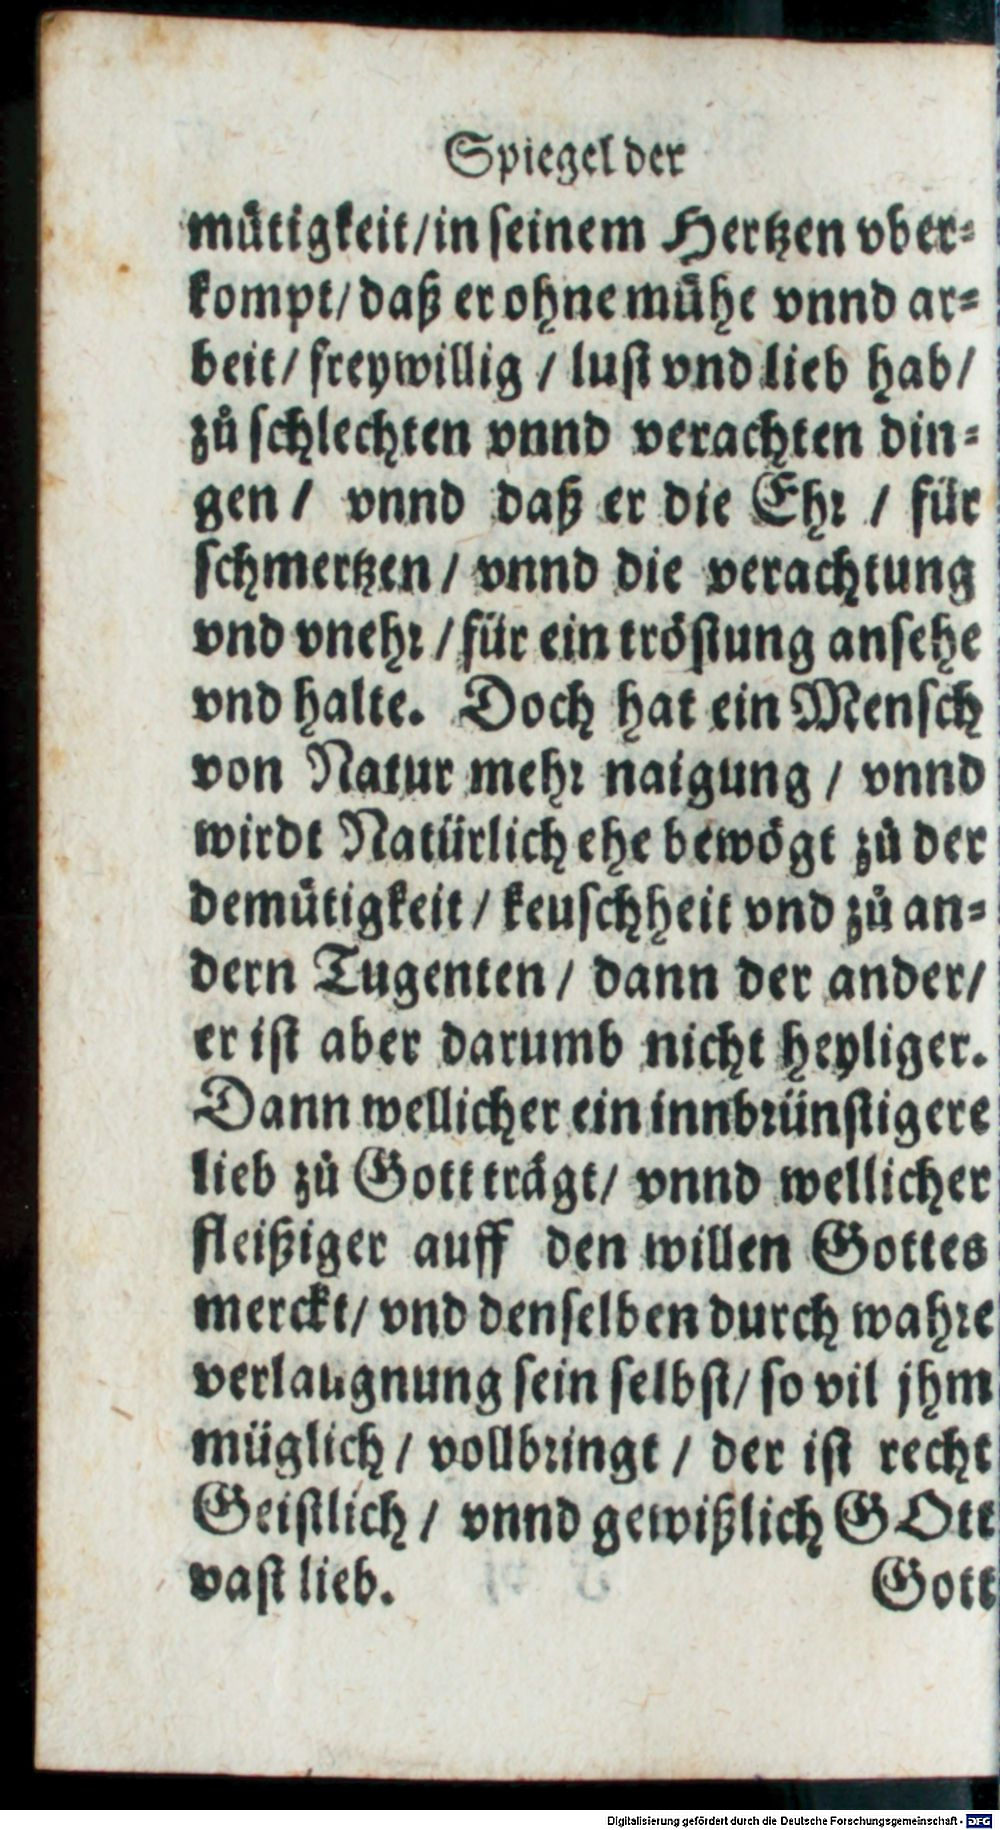 Spiegel der
muͤtigkeit/in seinem Hertzen vber-
kompt/daß er ohne muͤhe vnnd ar-
beit/ freywillig / lust vnd lieb hab/
zuͦ schlechten vnnd verachten din-
gen / vnnd daß er die Ehr / für
schmertzen / vnnd die verachtung
vnd vnehr / für ein tröstung ansehe
vnd halte. Doch hat ein Mensch
von Natur mehr naigung / vnnd
wirdt Natürlich ehe bewögt zuͦ der
demuͤtigkeit / keuschheit vnd zuͦ an-
dern Tugenten / dann der ander/
er ist aber darumb nicht heyliger.
Dann wellicher ein innbrünstigere
lieb zuͦ Gott trägt/ vnnd wellicher
fleißiger auff den willen Gottes
merckt/ vnd denselben durch wahre
verlaugnung sein selbst/ so vil jhm
müglich / vollbringt / der ist recht
Geistlich / vnnd gewißlich GOtt
vast lieb. Gott
Digitalisierung gefördert durch die Deutsche Forschungsgemeinschaft - DFG